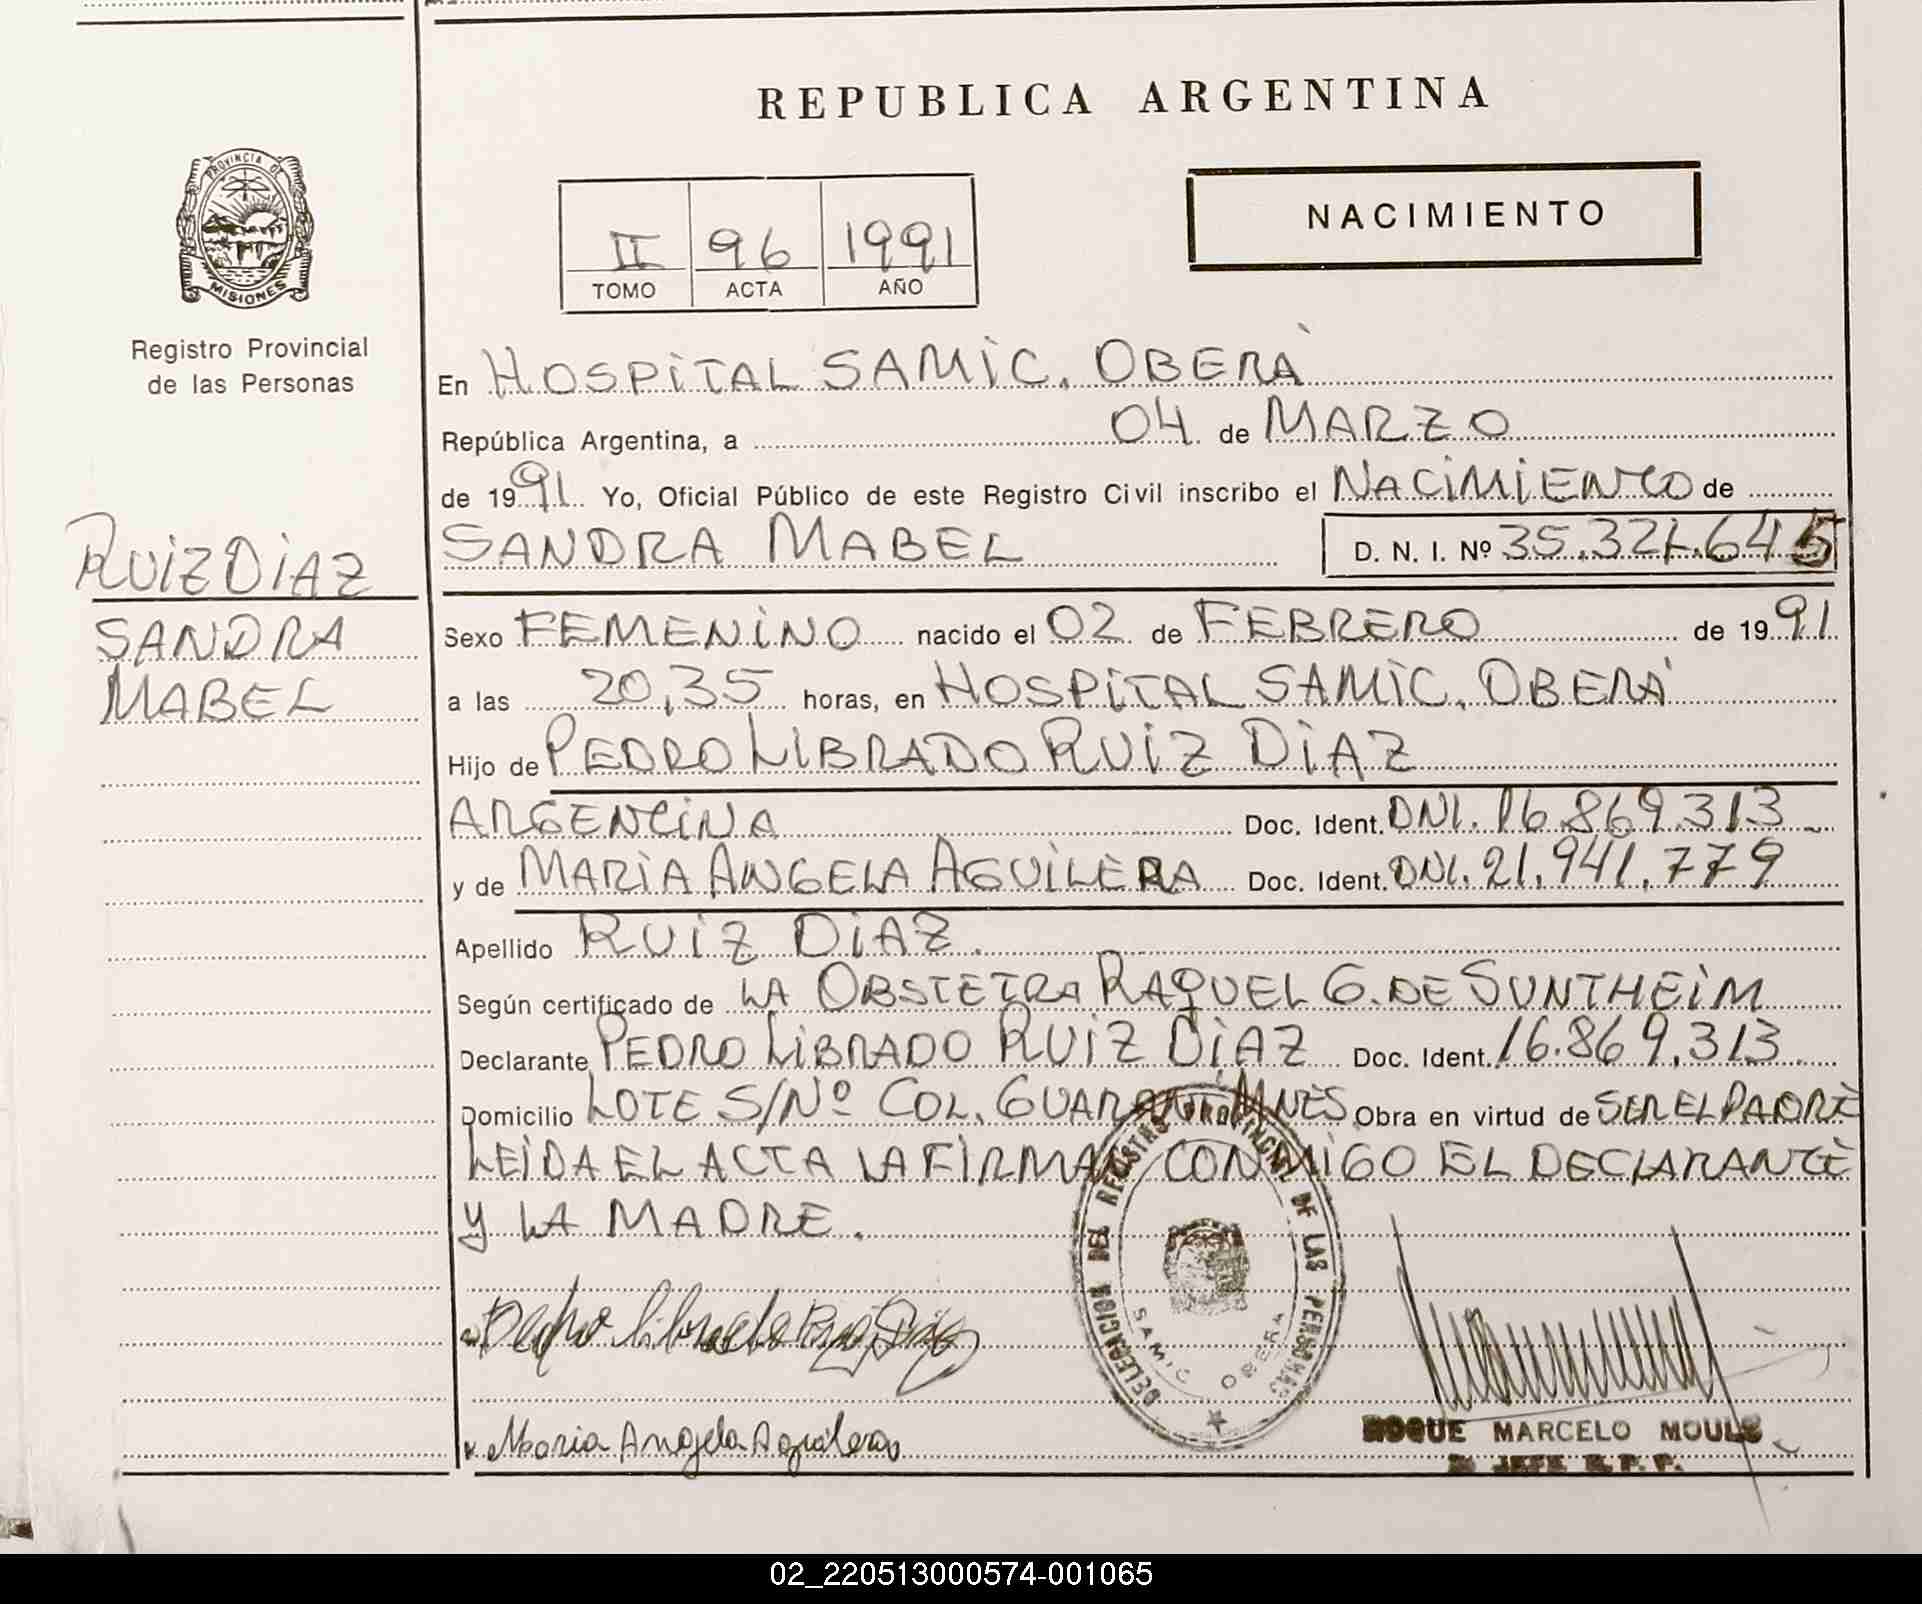 REPUBLICA ARGENTINA
PROVINCIA DE MISIONES
Registro Provincial
de las Personas
II 96 1991
TOMO ACTA AÑO
NACIMIENTO
En HOSPITAL SAMIC. OBERÁ
República Argentina, a 04 de MARZO
de 1991 Yo, Oficial Público de este Registro Civil inscribo el NACIMIENTO de
SANDRA MABEL D. N. I. Nº 35.321.645
RUIZ DIAZ
SANDRA
MABEL
Sexo FEMENINO nacido el 02 de FEBRERO de 1991
a las 20,35 horas, en HOSPITAL SAMIC. OBERÁ
Hijo de PEDRO LIBRADO RUIZ DIAZ
ARGENTINA Doc. Ident. DNI. 16.869.313
y de MARIA ANGELA AGUILERA Doc. Ident. DNI. 21.941.779
Apellido RUIZ DIAZ.
Según certificado de LA OBSTETRA RAQUEL G. DE SUNTHEIM
Declarante PEDRO LIBRADO RUIZ DIAZ Doc. Ident. 16.869.313
Domicilio LOTE S/Nº COL. GUARANI MNES Obra en virtud de SER EL PADRE
LEIDA EL ACTA LA FIRMAN CONMIGO EL DECLARANTE
Y LA MADRE.
DELEGACION DEL REGISTRO PROVINCIAL DE LAS PERSONAS
SAMIC OBERA
Pedro Librado Ruiz Diaz
Maria Angela Aguilera
ROQUE MARCELO MOULE
JEFE R. P. P.
02_220513000574-001065